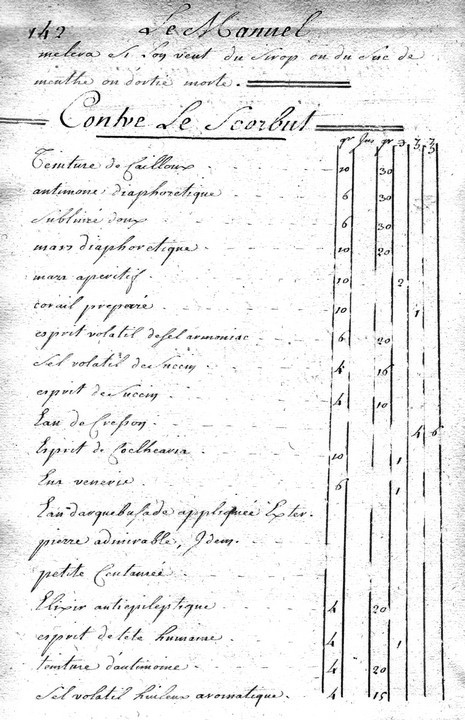 142 Le Manuel
melera si l'on veut du sirop ou du suc de
menthe ou d'ortie morte.
Contre Le Scorbut
gr jus gr ℈ ʒ ℥
Teinture de Cailloux 20 30
antimone diaphoretique 6 30
sublimé doux 6 30
mars diaphoretique 10 20
mars aperitif 10 2
corail preparé 10 1
esprit volatil de sel armoniac 6 20
Sel volatil de Succin 4 16
esprit de Succin 4 10
Eau de Cresson 4 6
Esprit de Coclhearia 10 1
Ens veneris 6 1
Eau d'arquebusade appliquée Exter.
pierre admirable, Idem.
petite Centaurée
Elixir antiepileptique 4 20
esprit de tete humaine 4 1
teinture d'antimone 4 20
Sel volatil huileux aromatique 4 15